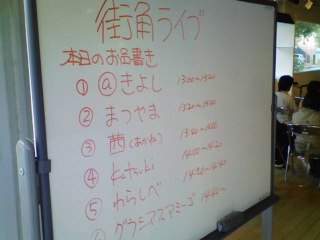 街角ライブ
本日のお品書き
① @きよし 13:00〜13:20
② まつやま 13:20〜13:40
③ 茜(あかね) 13:40〜14:00
④ 14:00〜14:20
⑤ わらしべ 14:20〜14:40
⑥ グラシアスアミーゴ 14:40〜